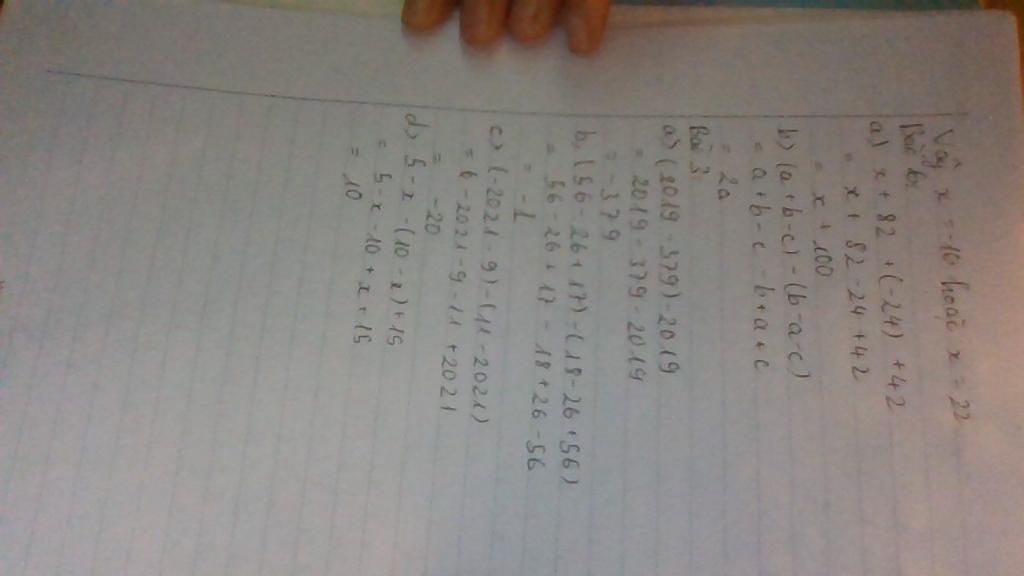 Vậy x = -10 hoặc x = 22
Bài
a) x + 82 + (-24) + 42
= x + 82 - 24 + 42
= x + 100
b) (a + b - c) - (b - a - c)
= a + b - c - b + a + c
= 2a
Bài 3
a) (2019 - 379) - 2019
= 2019 - 379 - 2019
= -379
b, (56 - 26 + 17) - (18 - 26 + 56)
= 56 - 26 + 17 - 18 + 26 - 56
= -1
c) (-2021 - 9) - (11 - 2021)
= -2021 - 9 - 11 + 2021
= -20
d) 5 - x - (10 - x) + 15
= 5 - x - 10 + x + 15
= 10